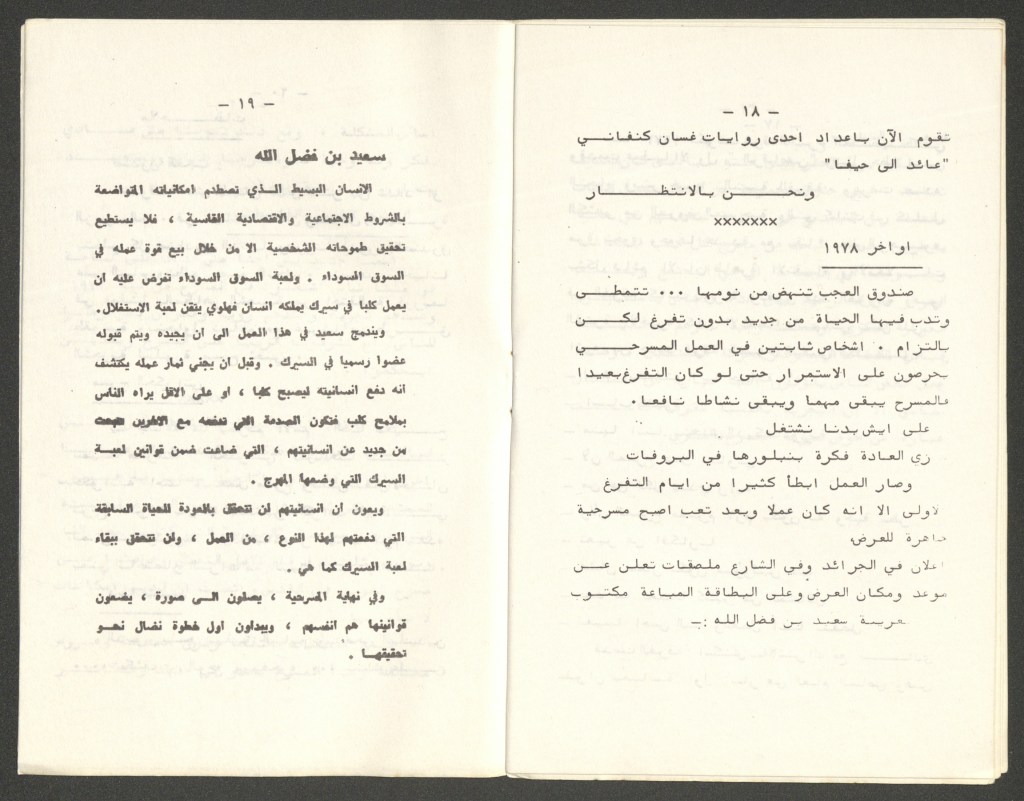 - ١٨ -
تقوم الآن باعداد احدى روايات غسان كنفاني
"عائد الى حيفا"
ونحن بالانتظار
xxxxxxx
اواخر ١٩٧٨
صندوق العجب تنهض من نومها ... تتمطى
وتدب فيها الحياة من جديد بدون تفرغ لكن
بالتزام . اشخاص ثابتين في العمل المسرحي
يحرصون على الاستمرار حتى لو كان التفرغ بعيدا
فالمسرح يبقى مهما ويبقى نشاطا نافعا.
على ايش بدنا نشتغل
زي العادة فكرة بنبلورها في البروفات
وصار العمل ابطأ كثيرا من ايام التفرغ
الاولى الا انه كان عملا وبعد تعب اصبح مسرحية
جاهزة للعرض.
اعلان في الجرائد وفي الشارع ملصقات تعلن عن
موعد ومكان العرض وعلى البطاقة المباعة مكتوب
سعيد بن فضل الله :-
- ١٩ -
سعيد بن فضل الله
الانسان البسيط الذي تصطدم امكانياته المتواضعة
بالشروط الاجتماعية والاقتصادية القاسية ، فلا يستطيع
تحقيق طموحاته الشخصية الا من خلال بيع قوة عمله في
السوق السوداء . ولعبة السوق السوداء تفرض عليه ان
يعمل كلبا في سيرك يملكه انسان فهلوي يتقن لعبة الاستغلال.
ويندمج سعيد في هذا العمل الى ان يجيده ويتم قبوله
عضوا رسميا في السيرك . وقبل ان يجني ثمار عمله يكتشف
انه دفع انسانيته ليصبح كلبا ، او على الاقل يراه الناس
بملامح كلب فتكون الصدمة التي تدفعه مع الاخرين للبحث
من جديد عن انسانيتهم ، التي ضاعت ضمن قوانين لعبة
السيرك التي وضعها المهرج .
ويعون ان انسانيتهم لن تتحقق بالعودة للحياة السابقة
التي دفعتهم لهذا النوع ، من العمل ، ولن تتحقق ببقاء
لعبة السيرك كما هي .
وفي نهاية المسرحية ، يصلون الى صورة ، يضعون
قوانينها هم انفسهم ، ويبداون اول خطوة نضال نحو
تحقيقها .